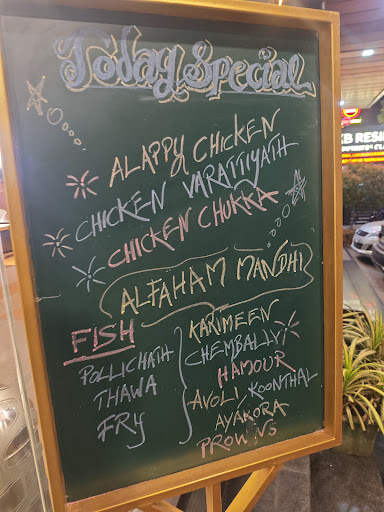 Today Special
ALAPPY CHICKEN
CHICKEN VARATTIYATH
CHICKEN CHUKKA
ALFAHAM MANDHI
FISH
POLLICHATH
THAWA
FRY
KARIMEEN
CHEMBALLY
HAMOUR
AVOLI KOONTHAL
AYAKORA
PROWNS